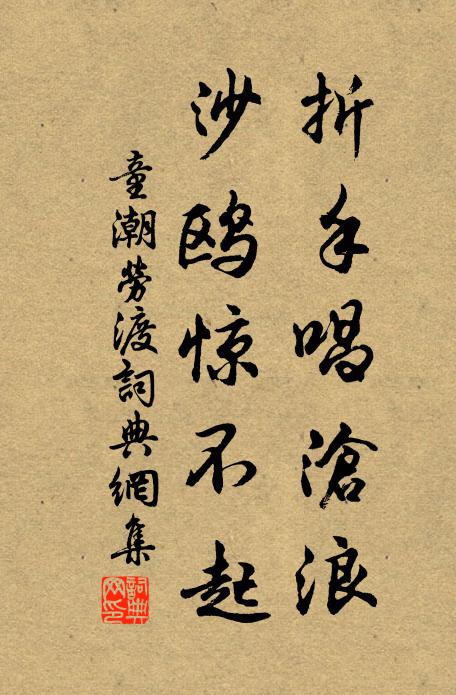 折手唱滄浪
沙鸥惊不起
童潮勞渡詞典網集
詞典網印